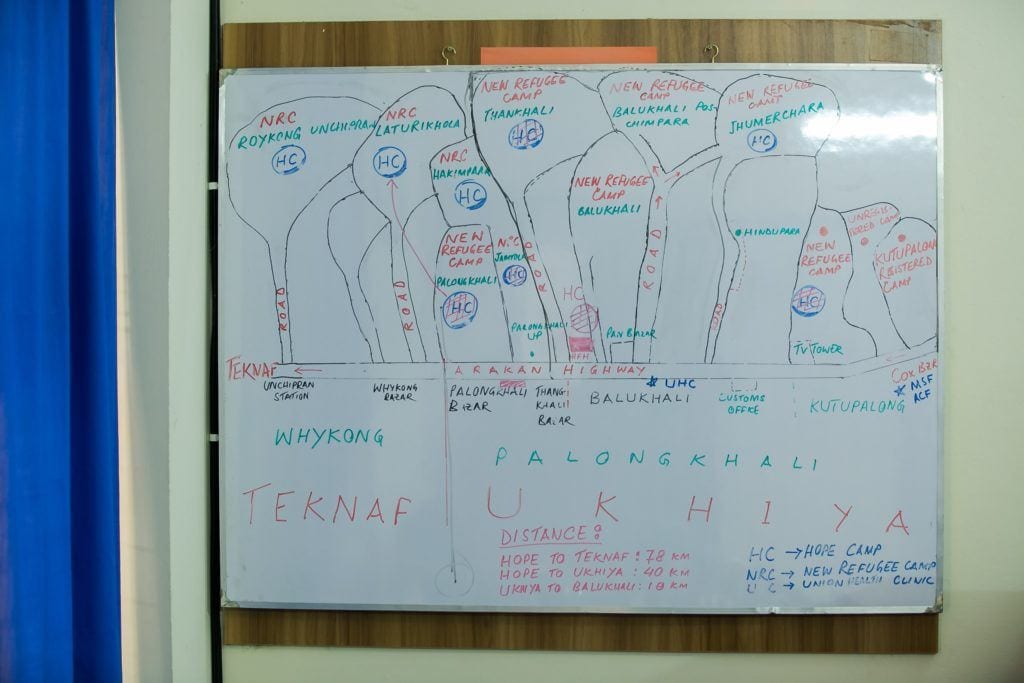 NRC
ROYKONG UNCHIPRAN
HC
NRC
LATURIKHOLA
HC
NRC
HAKIMPARA
HC
NEW REFUGEE
CAMP
THANKHALI
HC
NEW REFUGEE
CAMP
BALUKHALI POS-
CHIMPARA
NEW REFUGEE
CAMP
JHUMERCHARA
HC
NEW
REFUGEE
CAMP
PALONGKHALI
HC
NRC
JAMTOLI
HC
NEW REFUGEE
CAMP
BALUKHALI
HINDUPARA
NEW
REFUGEE
CAMP
HC
UNREGIS
TERED CAMP
KUTUPALONG
REGISTERED
CAMP
ROAD
ROAD
ROAD
ROAD
ROAD
HC
HFH
PALONGKHALI
UP
PAN BAZAR
TV TOWER
TEKNAF
ARAKAN HIGHWAY
COX BZR
UNCHIPRAN
STATION
WHYKONG
BAZAR
PALONGKHALI
BAZAR
THANG-
KHALI
BAZAR
BALUKHALI
UHC
CUSTOMS
OFFICE
KUTUPALONG
MSF
ACF
WHYKONG
PALONGKHALI
TEKNAF
UKHIYA
DISTANCE:
HOPE TO TEKNAF: 78 KM
HOPE TO UKHIYA: 40 KM
UKHIYA TO BALUKHALI: 10 KM
HC → HOPE CAMP
NRC → NEW REFUGEE CAMP
U C → UNION HEALTH CLINIC